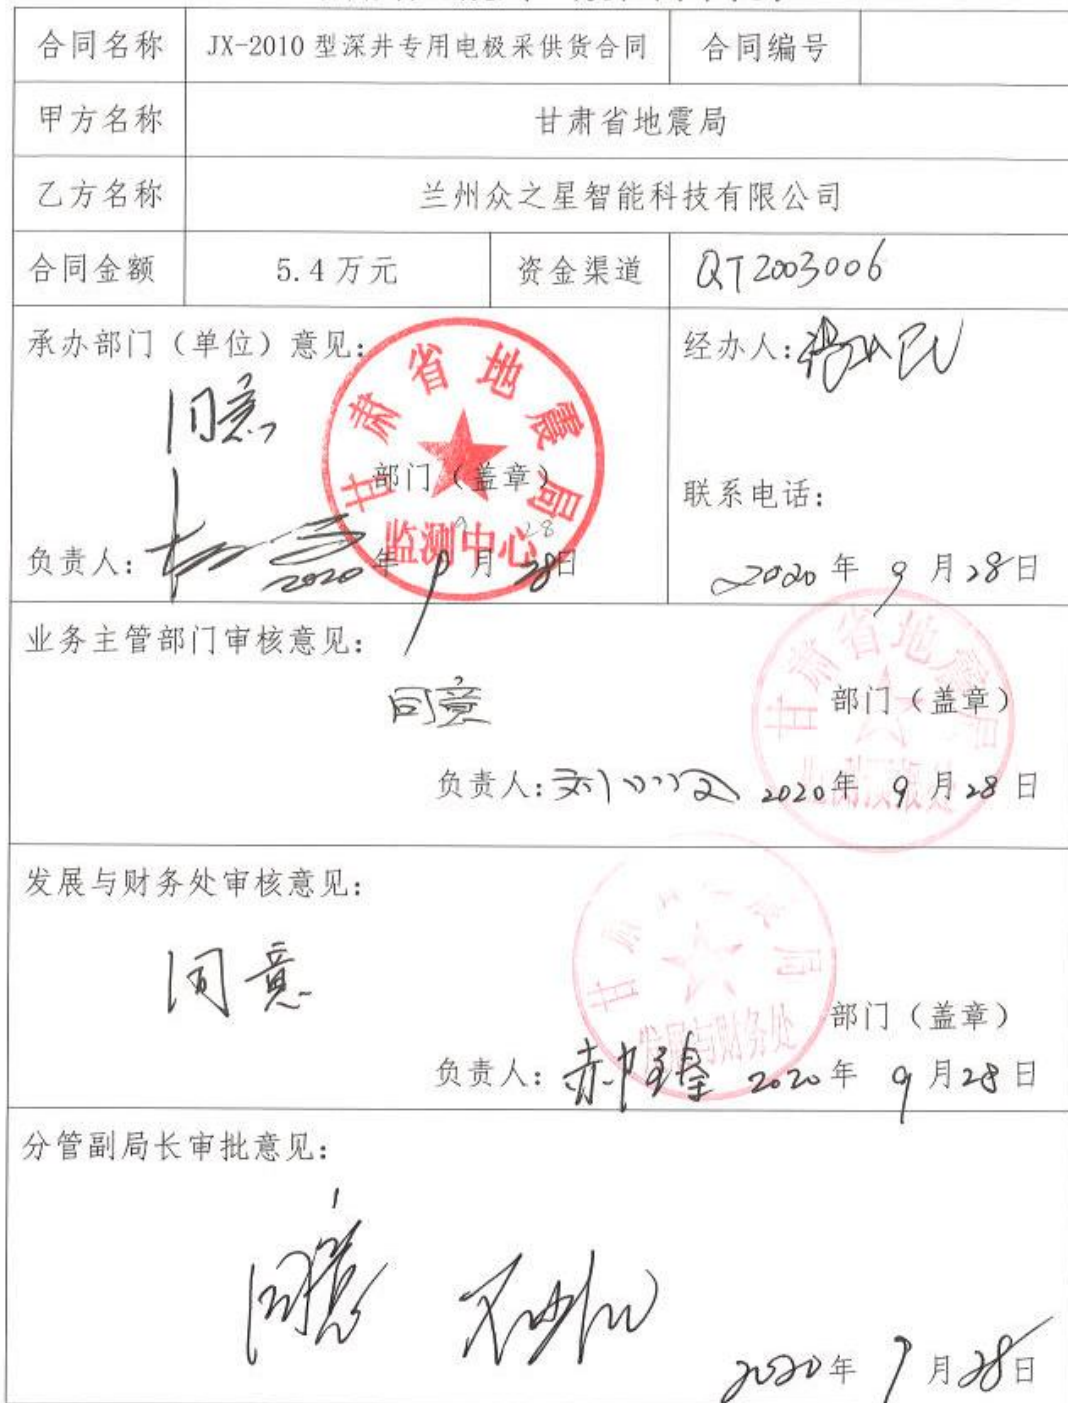 合同名称 JX-2010型深井专用电极采供货合同 合同编号
甲方名称 甘肃省地震局
乙方名称 兰州众之星智能科技有限公司
合同金额 5.4万元 资金渠道 QT2003006
承办部门（单位）意见：
同意
甘肃省地震局
监测中心
部门（盖章）
9 28
负责人： 2020年9月28日
经办人：
联系电话：
2020年9月28日
业务主管部门审核意见：
同意
甘肃省地震局
监测预报处
部门（盖章）
负责人： 2020年9月28日
发展与财务处审核意见：
同意
甘肃省地震局
发展与财务处
部门（盖章）
负责人： 2020年9月28日
分管副局长审批意见：
同意
2020年9月28日